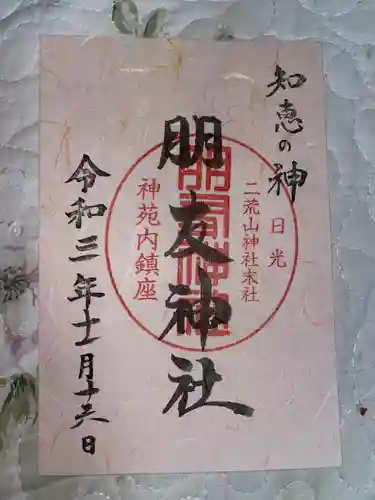 知恵の神
日光
二荒山神社末社
朋友神社
朋友神社
神苑内鎮座
令和三年十一月十六日